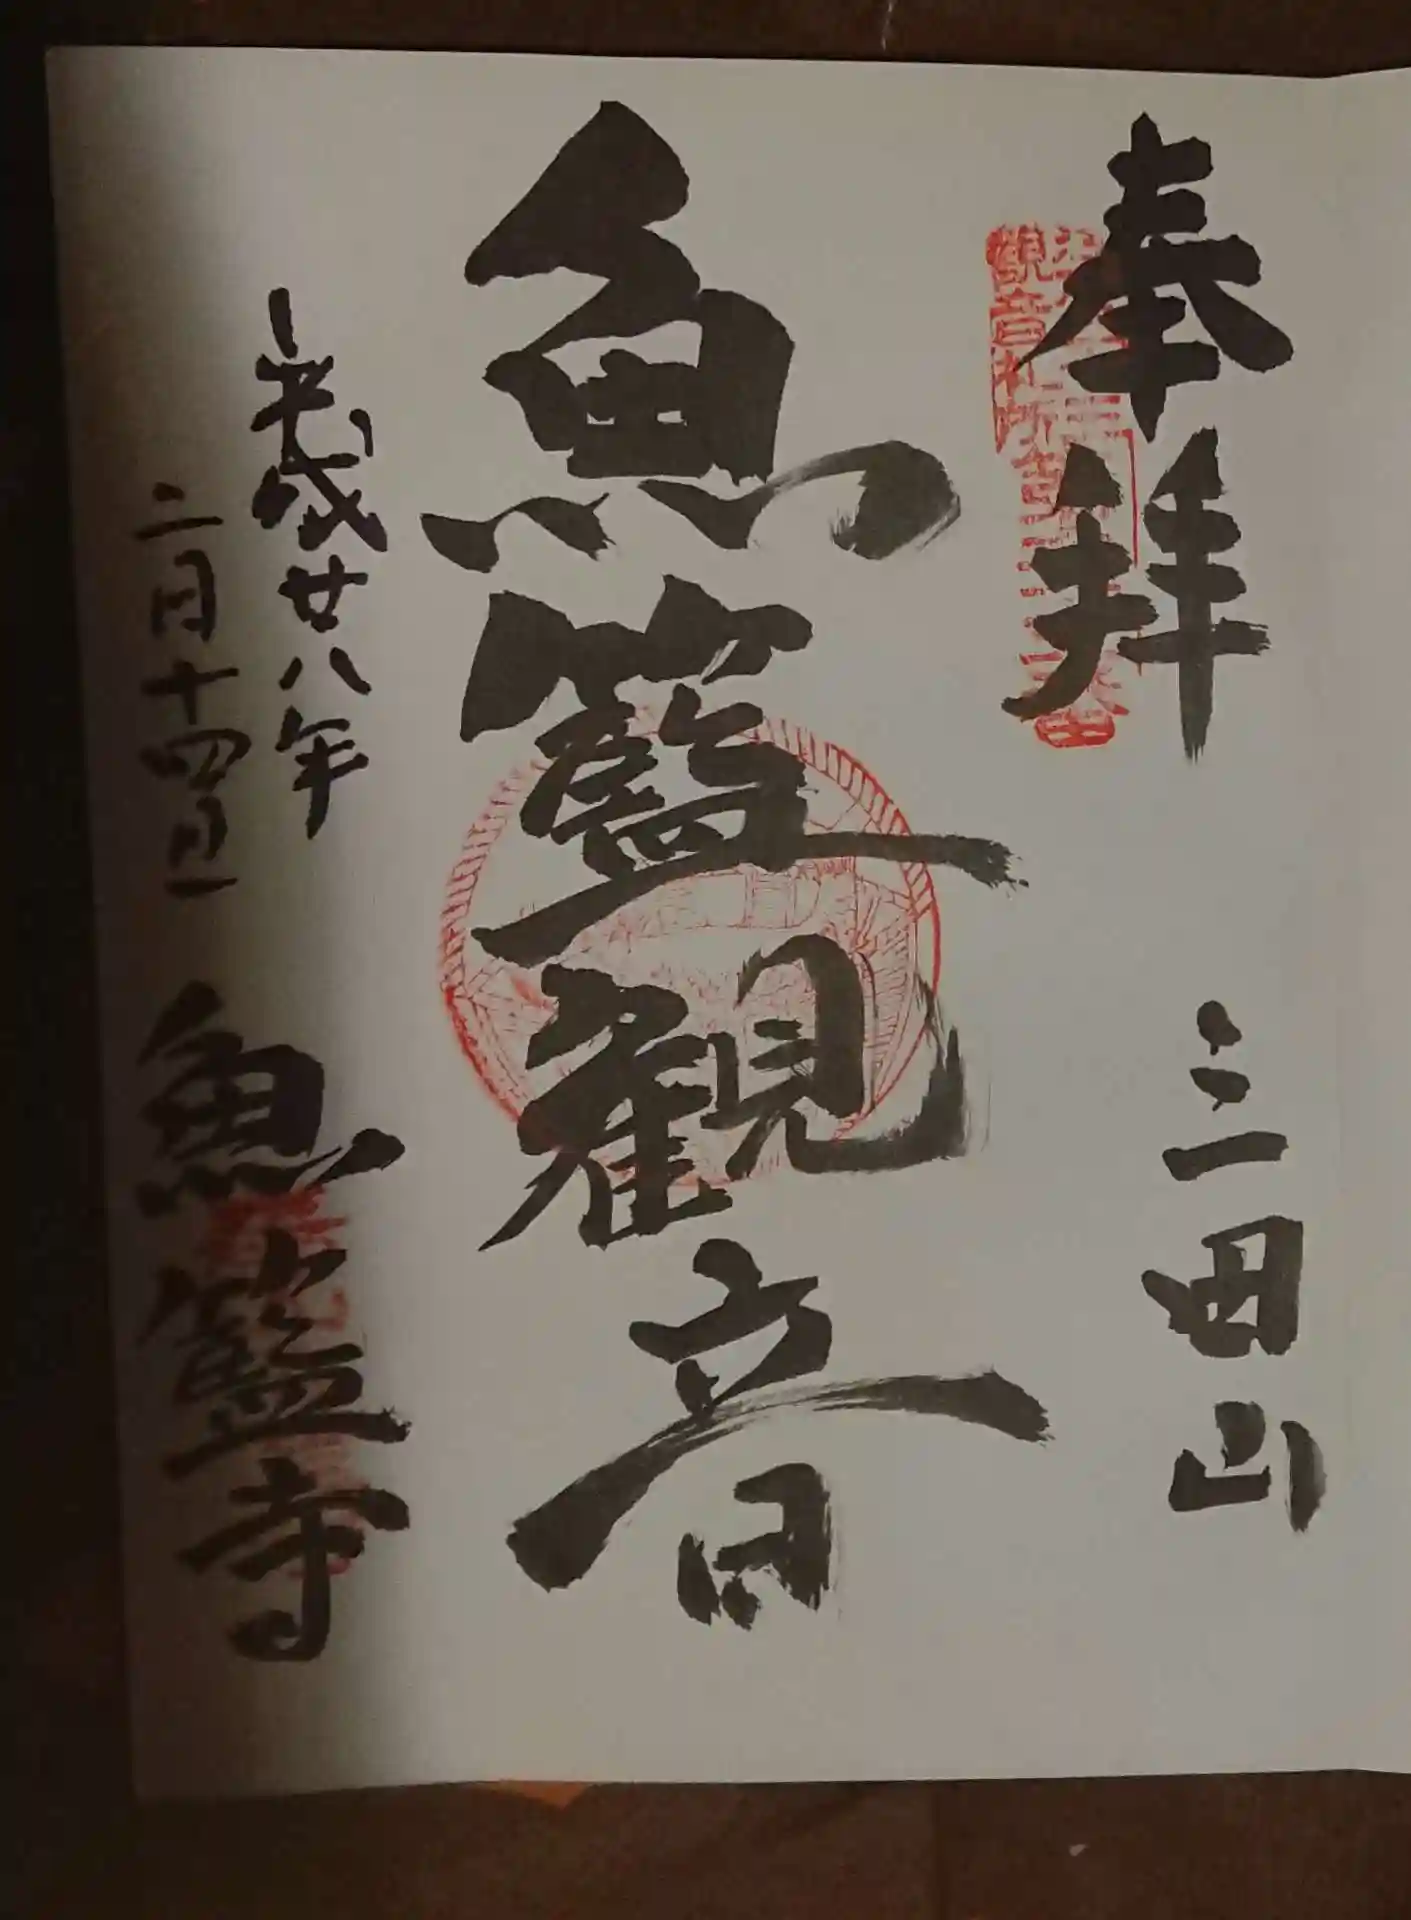 奉拝
三田山
魚籃観音
平成廿八年
二月十四日
魚籃寺